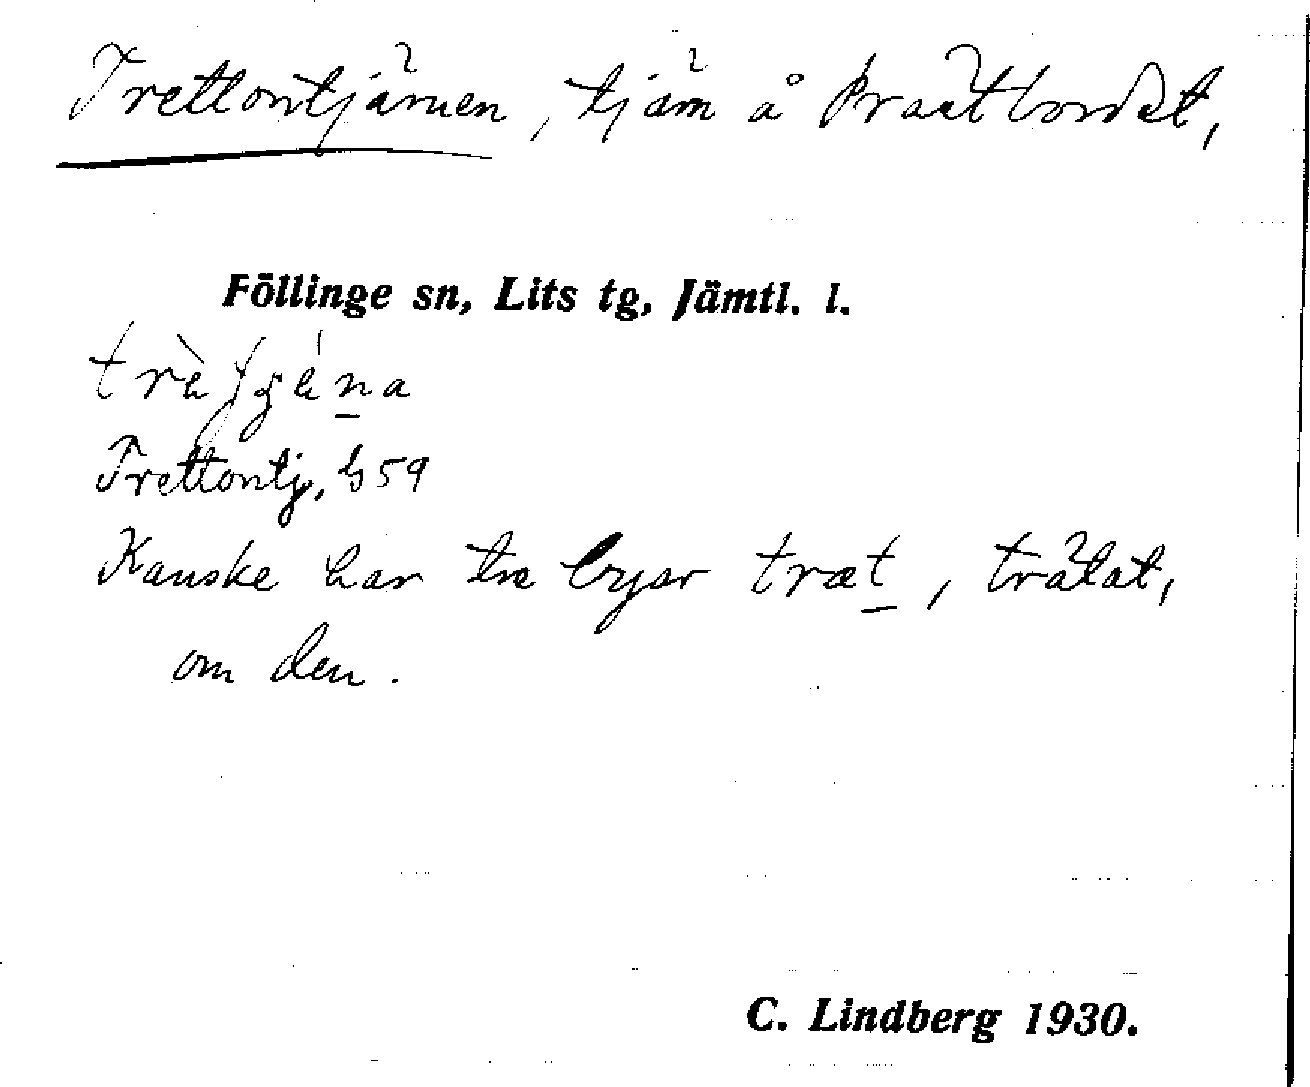 Trettontjärnen, tjärn å Prästbordet,
Föllinge sn, Lits tg, Jämtl. l.
Trettontj, b 59
Kanske har tre byar træt, trätat,
om den.
C. Lindberg 1930.